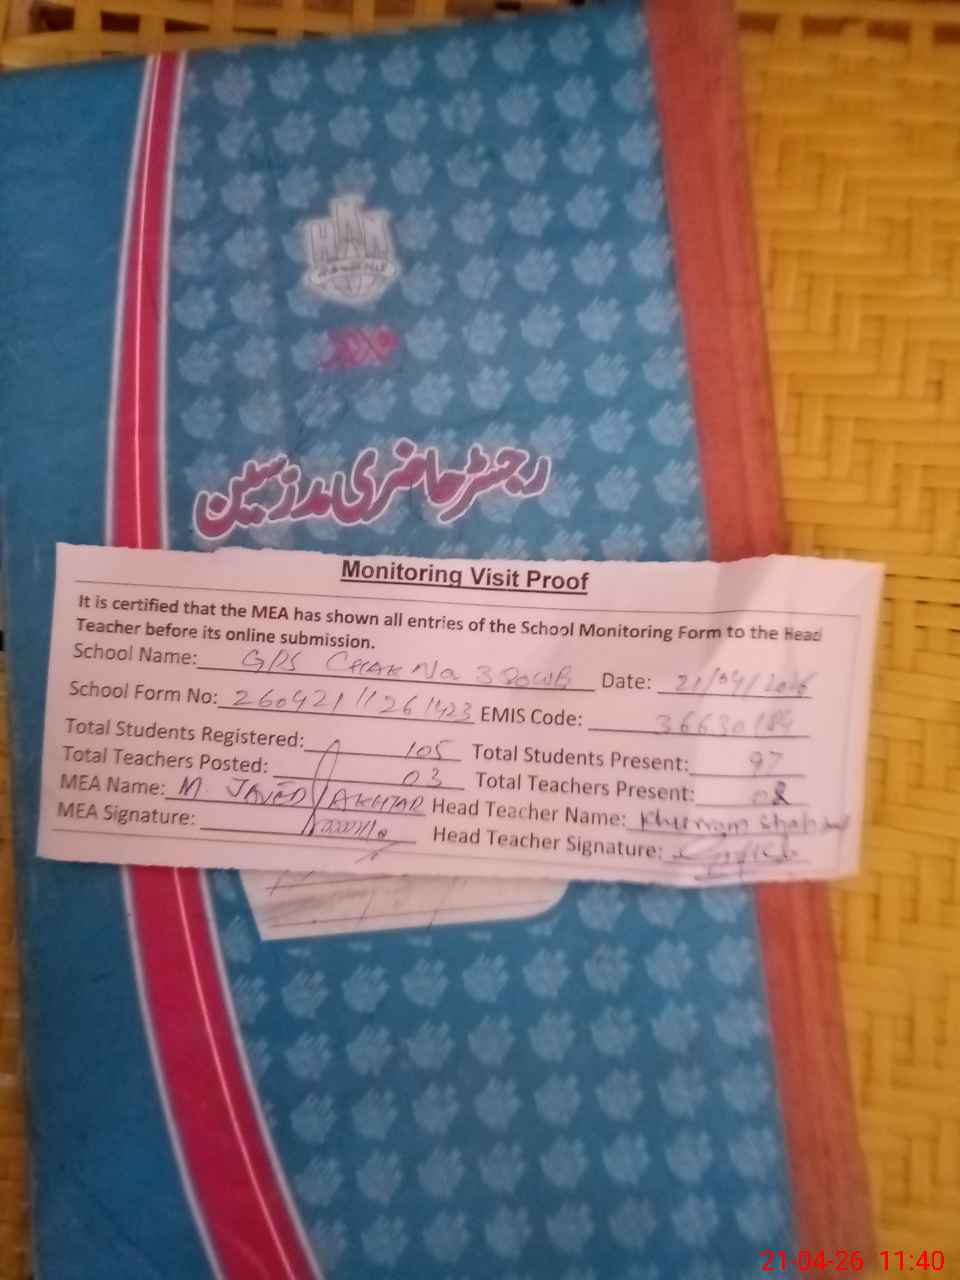 رجسٹر حاضری مدرسین
Monitoring Visit Proof
It is certified that the MEA has shown all entries of the School Monitoring Form to the Head
Teacher before its online submission.
School Name: GPS CHAK No 380WB Date: 21/04/2026
School Form No: 26042111261423 EMIS Code: 36630184
Total Students Registered: 105 Total Students Present: 97
Total Teachers Posted: 03 Total Teachers Present: 02
MEA Name: M. JAVED AKHTAR Head Teacher Name: Khurram
MEA Signature: Head Teacher Signature:
21-04-26 11:40